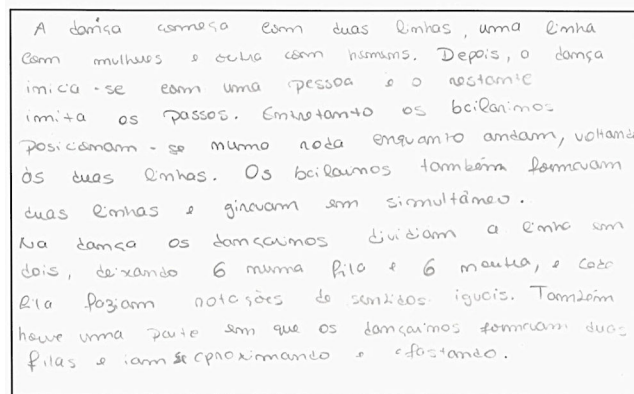 A dança começa com duas linhas, uma linha
com mulheres e outra com homens. Depois, a dança
inicia-se com uma pessoa e o restante
imita os passos. Entretanto os bailarinos
posicionam-se numa roda enquanto andam, voltando
às duas linhas. Os bailarinos também formavam
duas linhas e giravam em simultâneo.
Na dança os dançarinos dividiam a linha em
dois, deixando 6 numa fila e 6 noutra, e cada
fila faziam rotações de sentidos iguais. Também
houve uma parte em que os dançarinos formavam duas
filas e iam se aproximando e afastando.